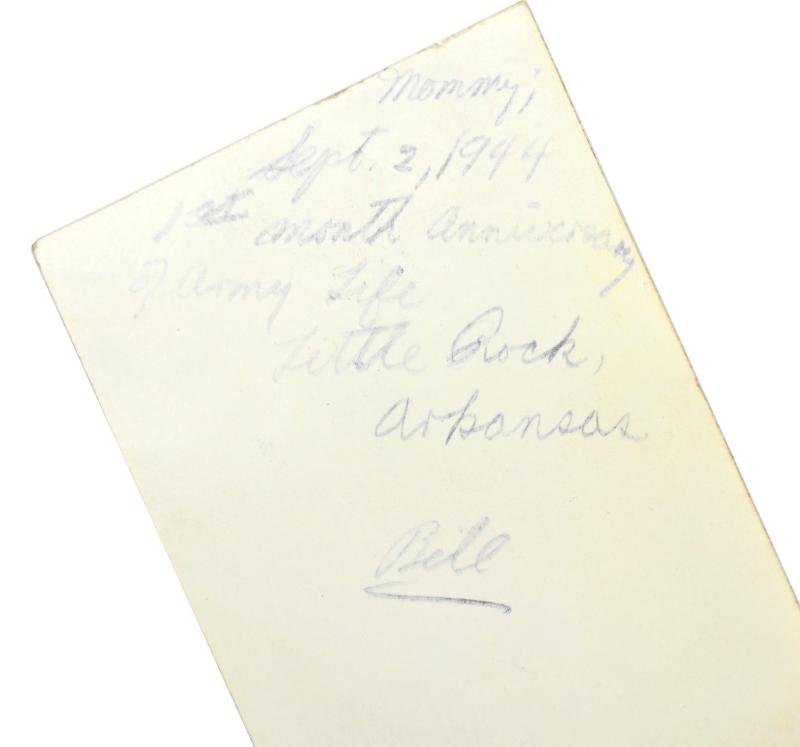 Mommy;
Sept. 2, 1944
1st month Anniversary
of Army Life
Little Rock,
Arkansas
Bill